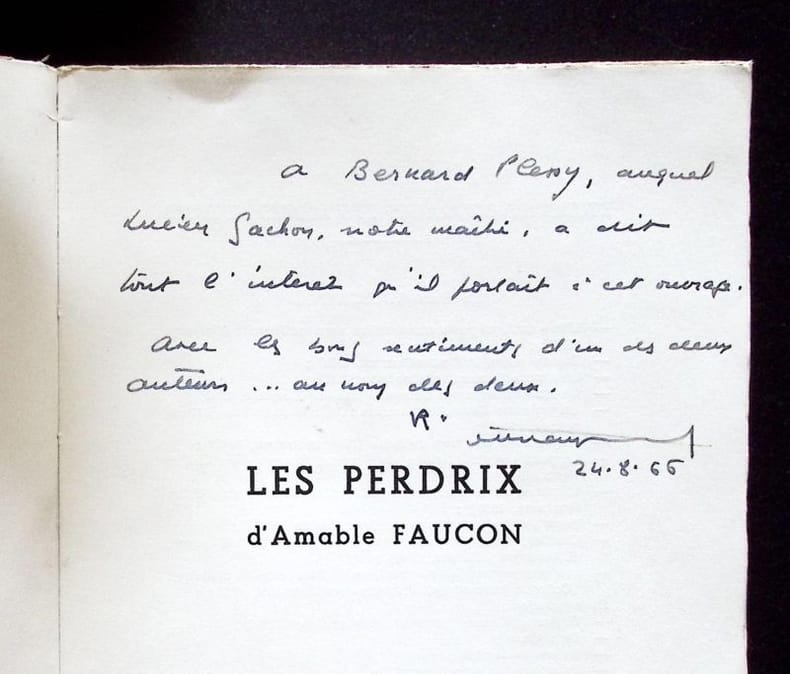 a Bernard Plessy, auquel
Lucien Gachon, notre maître, a dit
tout l'interet qu'il portait à cet ouvrage.
Avec les bons sentiments d'un des deux
auteurs ... au nom des deux.
LES PERDRIX
24.8.66
d'Amable FAUCON